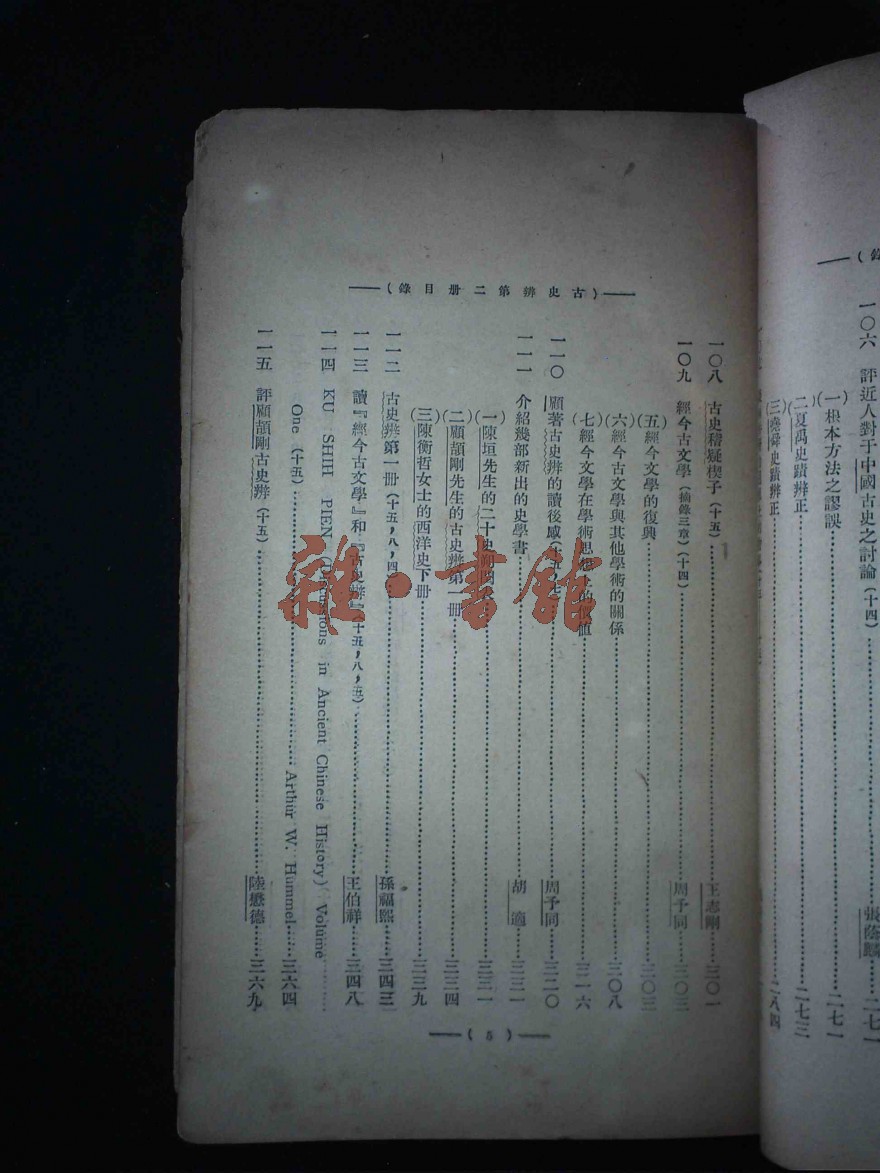 一〇六 評近人對于中國古史之討論(十四)……張蔭麟……二七一
(一)根本方法之謬誤……二七一
(二)夏禹史蹟辨正……二七三
(三)堯舜史蹟辨正……二八四
(古史辨第二册目錄)
一〇八 古史稽疑楔子(十五)……王志剛……三〇一
一〇九 經今古文學(摘錄三章)(十四)……周予同……三〇三
(五)經今文學的復興……三〇三
(六)經今古文學與其他學術的關係……三〇八
(七)經今文學在學術思想上的價値……三一六
一一〇 顧著古史辨的讀後感(十五,七)……周予同……三二〇
一一一 介紹幾部新出的史學書……胡適……三三一
(一)陳垣先生的二十史朔閏表……三三一
(二)顧頡剛先生的古史辨第一册……三三四
(三)陳衡哲女士的西洋史下册……三三九
一一二 古史辨第一册(十五,八,四)……孫福熙……三四三
一一三 讀『經今古文學』和『古史辨』(十五,八,五)……王伯祥……三四八
一一四 KU SHIH PIEN (Discussions in Ancient Chinese History) Volume
One (十五)……Arthur W. Hummel……三六四
一一五 評顧頡剛古史辨(十五)……陸懋德……三六九
(5)
雜·書館